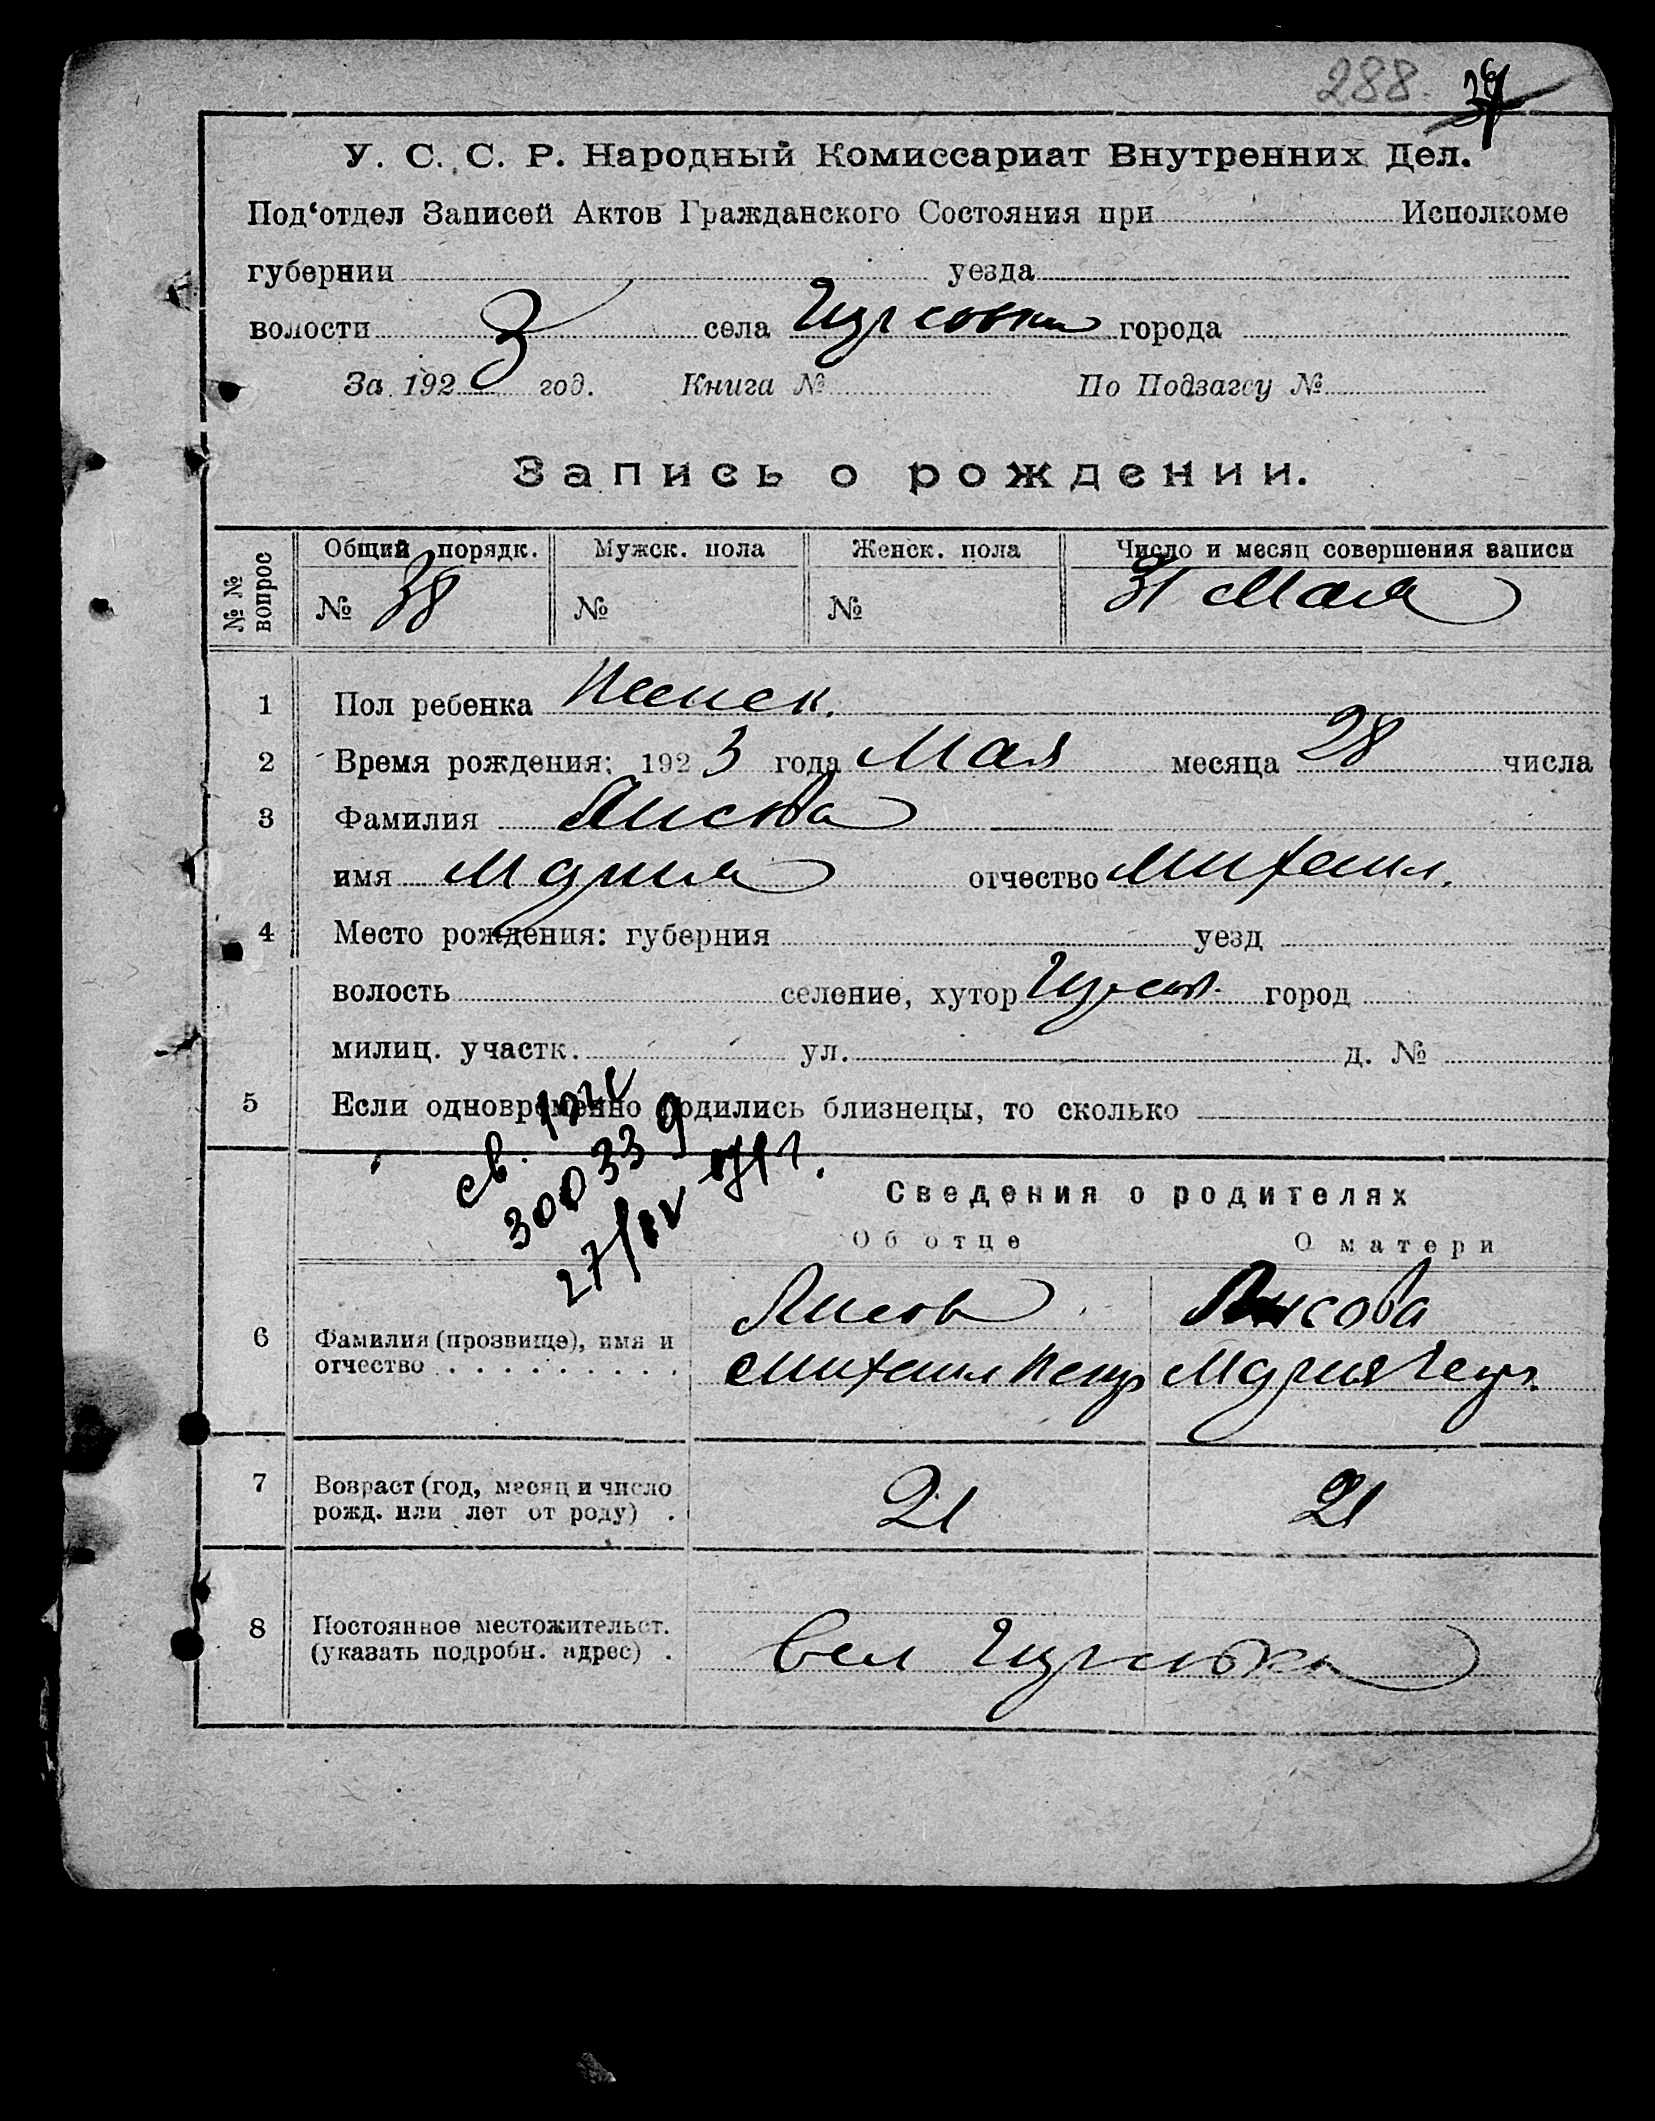 288.
У. С. С. Р. Народный Комиссариат Внутренних Дел.
Под‘отдел Записей Актов Гражданского Состояния при Исполкоме
губернии уезда
волости села города
За 1923 год. Книга № По Подзагсу №
Запись о рождении.
№ № вопрос
Общий порядк. Мужск. пола Женск. пола Число и месяц совершения записи
№ 38 № № 31 Мая
1 Пол ребенка Женск.
2 Время рождения: 1923 года Мая месяца 28 числа
3 Фамилия Лисова
имя Мария отчество Михаил.
4 Место рождения: губерния уезд
волость селение, хутор город
милиц. участк. ул. д. №
5 Если одновременно родились близнецы, то сколько
св.
300339
Сведения о родителях
Об отце О матери
6 Фамилия (прозвище), имя и отчество . . . . . . . . .
Лисов Лисова
Михаил Петр Мария
7 Возраст (год, месяц и число рожд. или лет от роду) . 21 21
8 Постоянное местожительст. (указать подробн. адрес) .